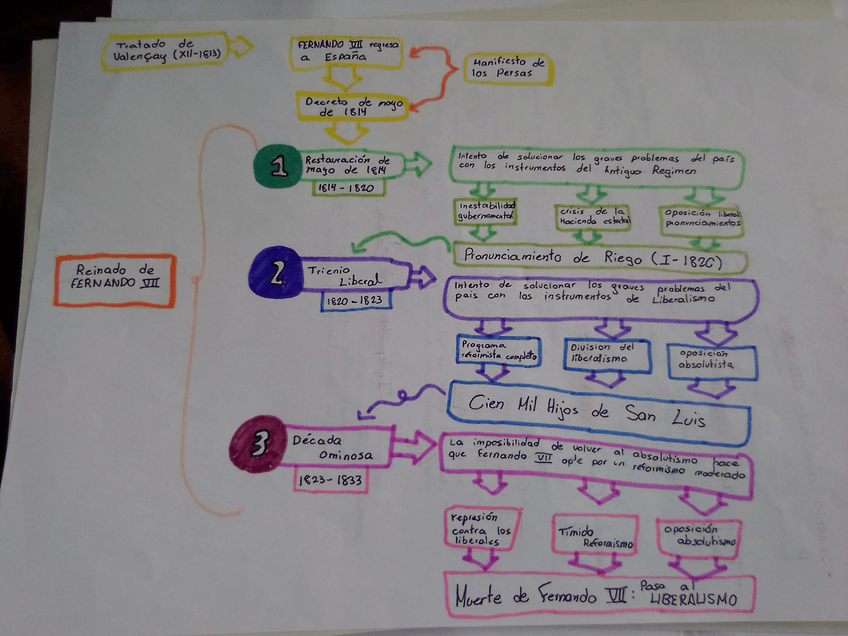 Tratado de
Valençay (XII-1813)
FERNANDO VII regresa
a España
Manifiesto de
los Persas
Decreto de mayo
de 1814
1
Restauración de
mayo de 1814
1814-1820
Intento de solucionar los graves problemas del país
con los instrumentos del Antiguo Regimen
Inestabilidad
gubernamental
crisis de la
Hacienda estatal
oposición liberal:
pronunciamientos
Pronunciamiento de Riego (I-1820)
Reinado de
FERNANDO VII
2
Trienio
Liberal
1820-1823
Intento de solucionar los graves problemas del
país con los instrumentos de Liberalismo
Programa
reformista completo
Division del
liberalismo
oposición
absolutista
Cien Mil Hijos de San Luis
3
Década
ominosa
1823-1833
La imposibilidad de volver al absolutismo hace
que Fernando VII opte por un reformismo moderado
represión
contra los
liberales
Tímido
Reformismo
oposición
absolutismo
Muerte de Fernando VII: Paso al
LIBERALISMO